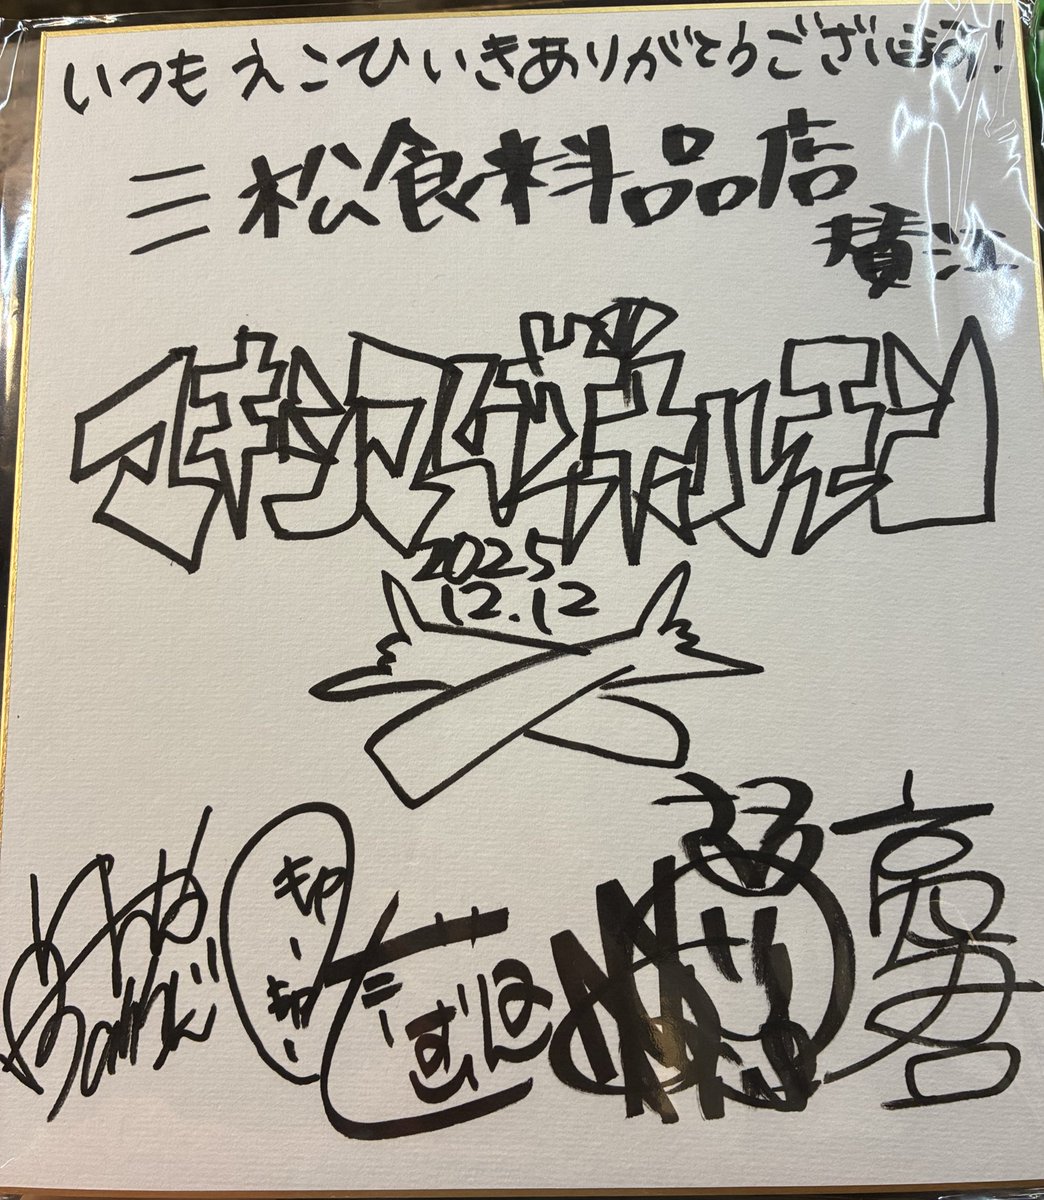 いつもえこひいきありがとうございます!
三松食料品店
賛江
マキシマムザホルモン
2025
12.12
キャーキャー